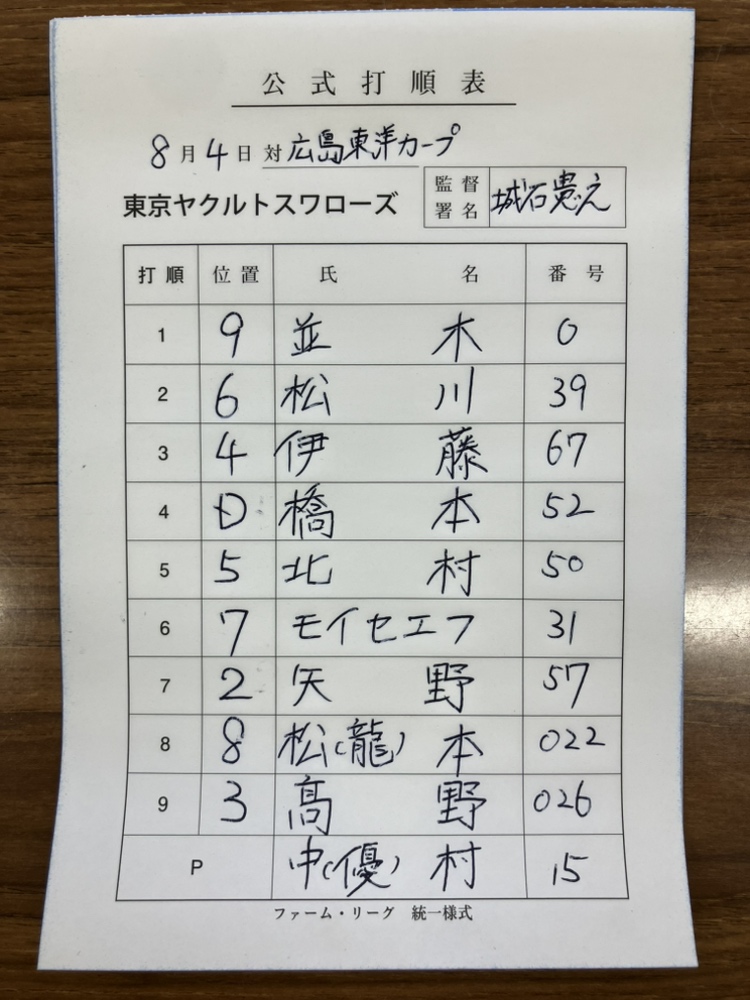 公式打順表
8月4日 対 広島東洋カープ
東京ヤクルトスワローズ 監督署名 城石憲之
打順 位置 氏名 番号
1 9 並木 0
2 6 松川 39
3 4 伊藤 67
4 D 橋本 52
5 5 北村 50
6 7 モイセエフ 31
7 2 矢野 57
8 8 松(龍)本 022
9 3 髙野 026
P 中(優)村 15
ファーム・リーグ 統一様式